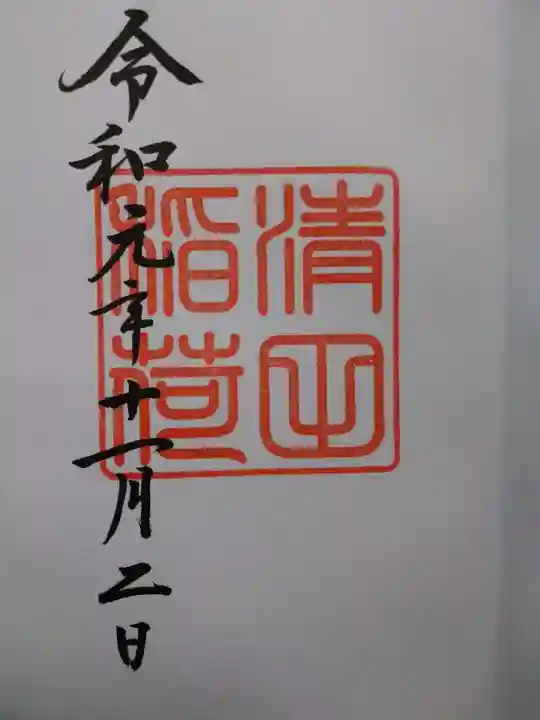 清
稲荷
令和元年十一月二日